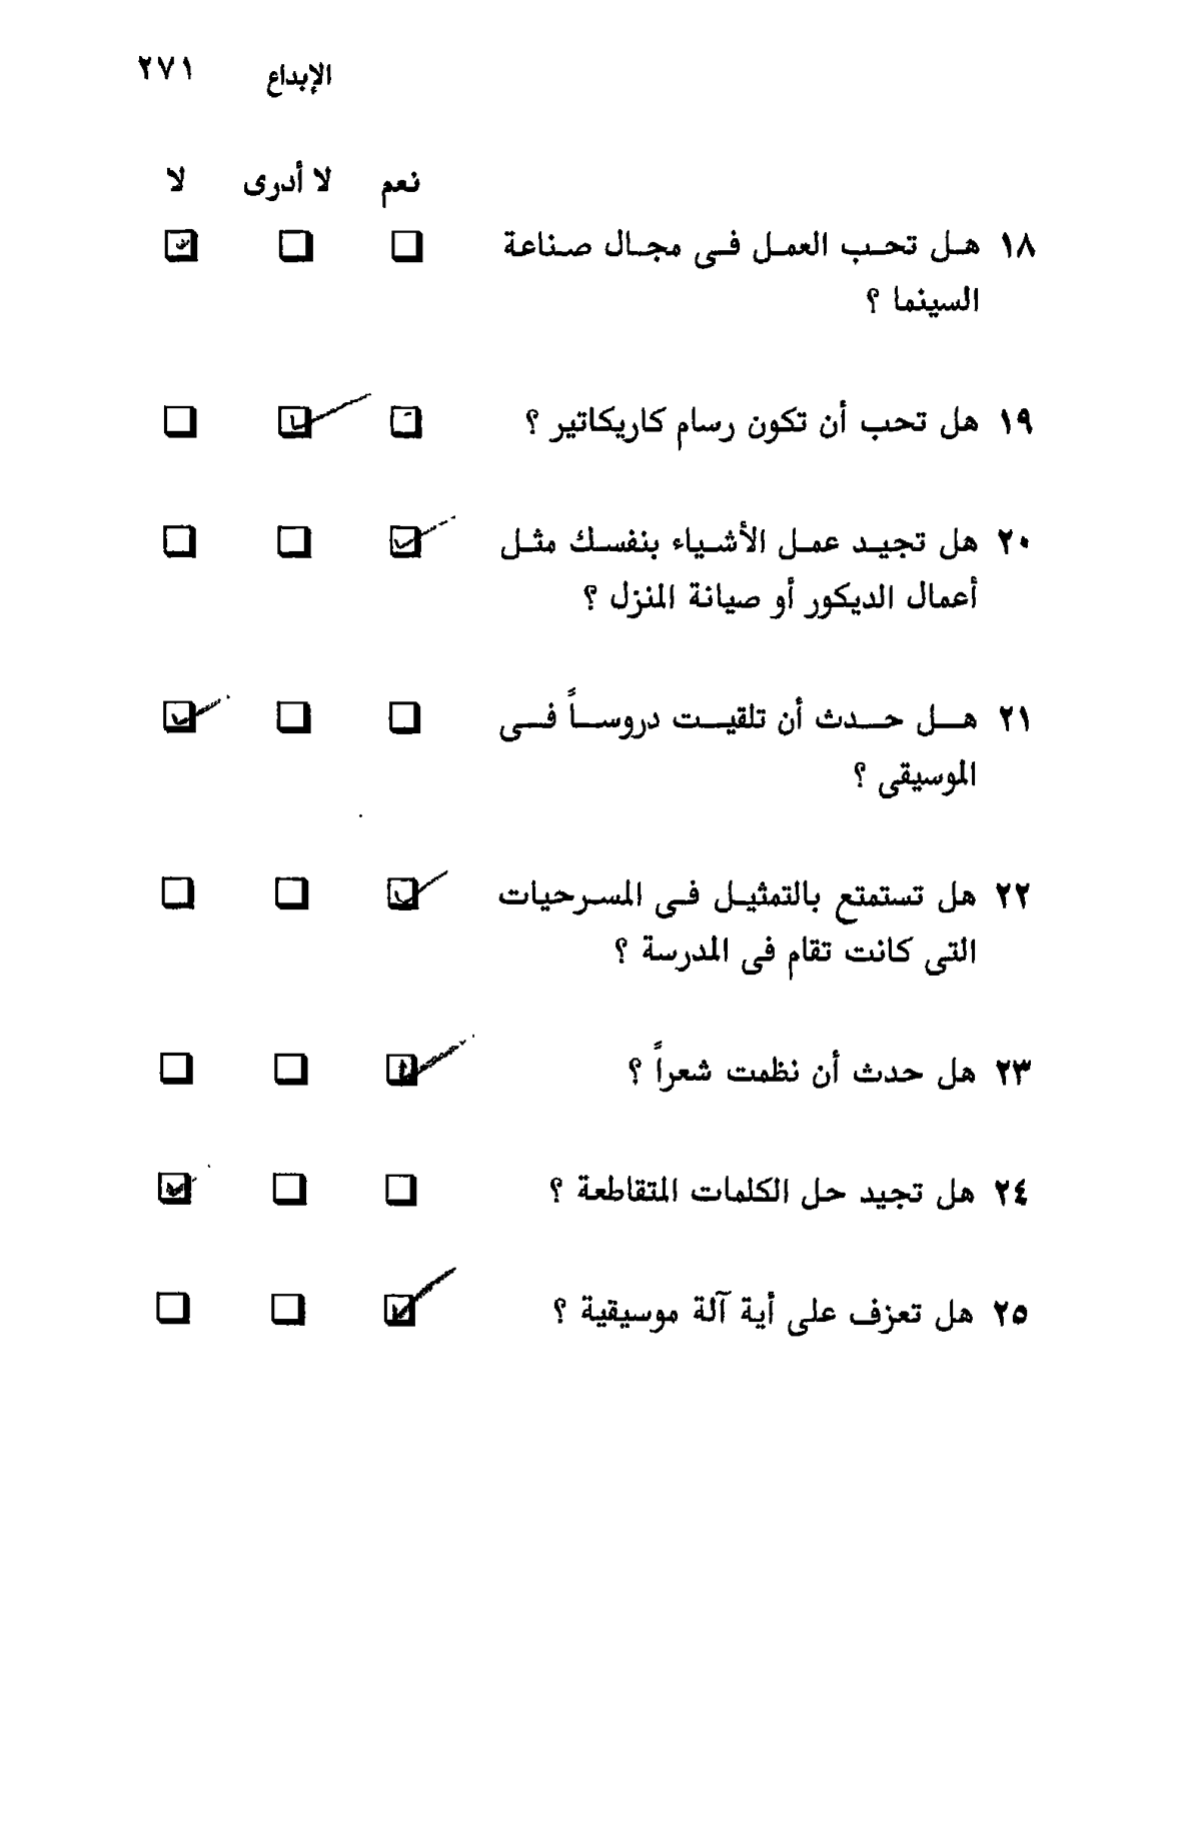 الإبداع ٢٧١
نعم لا أدرى لا
١٨ هـل تحـب العمـل فـى مجـال صـناعة
السينما ؟
١٩ هل تحب أن تكون رسام كاريكاتير ؟
٢٠ هل تجيـد عمـل الأشـياء بنفسـك مثـل
أعمال الديكور أو صيانة المنزل ؟
٢١ هـل حـدث أن تلقيـت دروسـاً فـى
الموسيقى ؟
٢٢ هل تستمتع بالتمثيـل فـى المسـرحيات
التى كانت تقام فى المدرسة ؟
٢٣ هل حدث أن نظمت شعراً ؟
٢٤ هل تجيد حل الكلمات المتقاطعة ؟
٢٥ هل تعزف على أية آلة موسيقية ؟